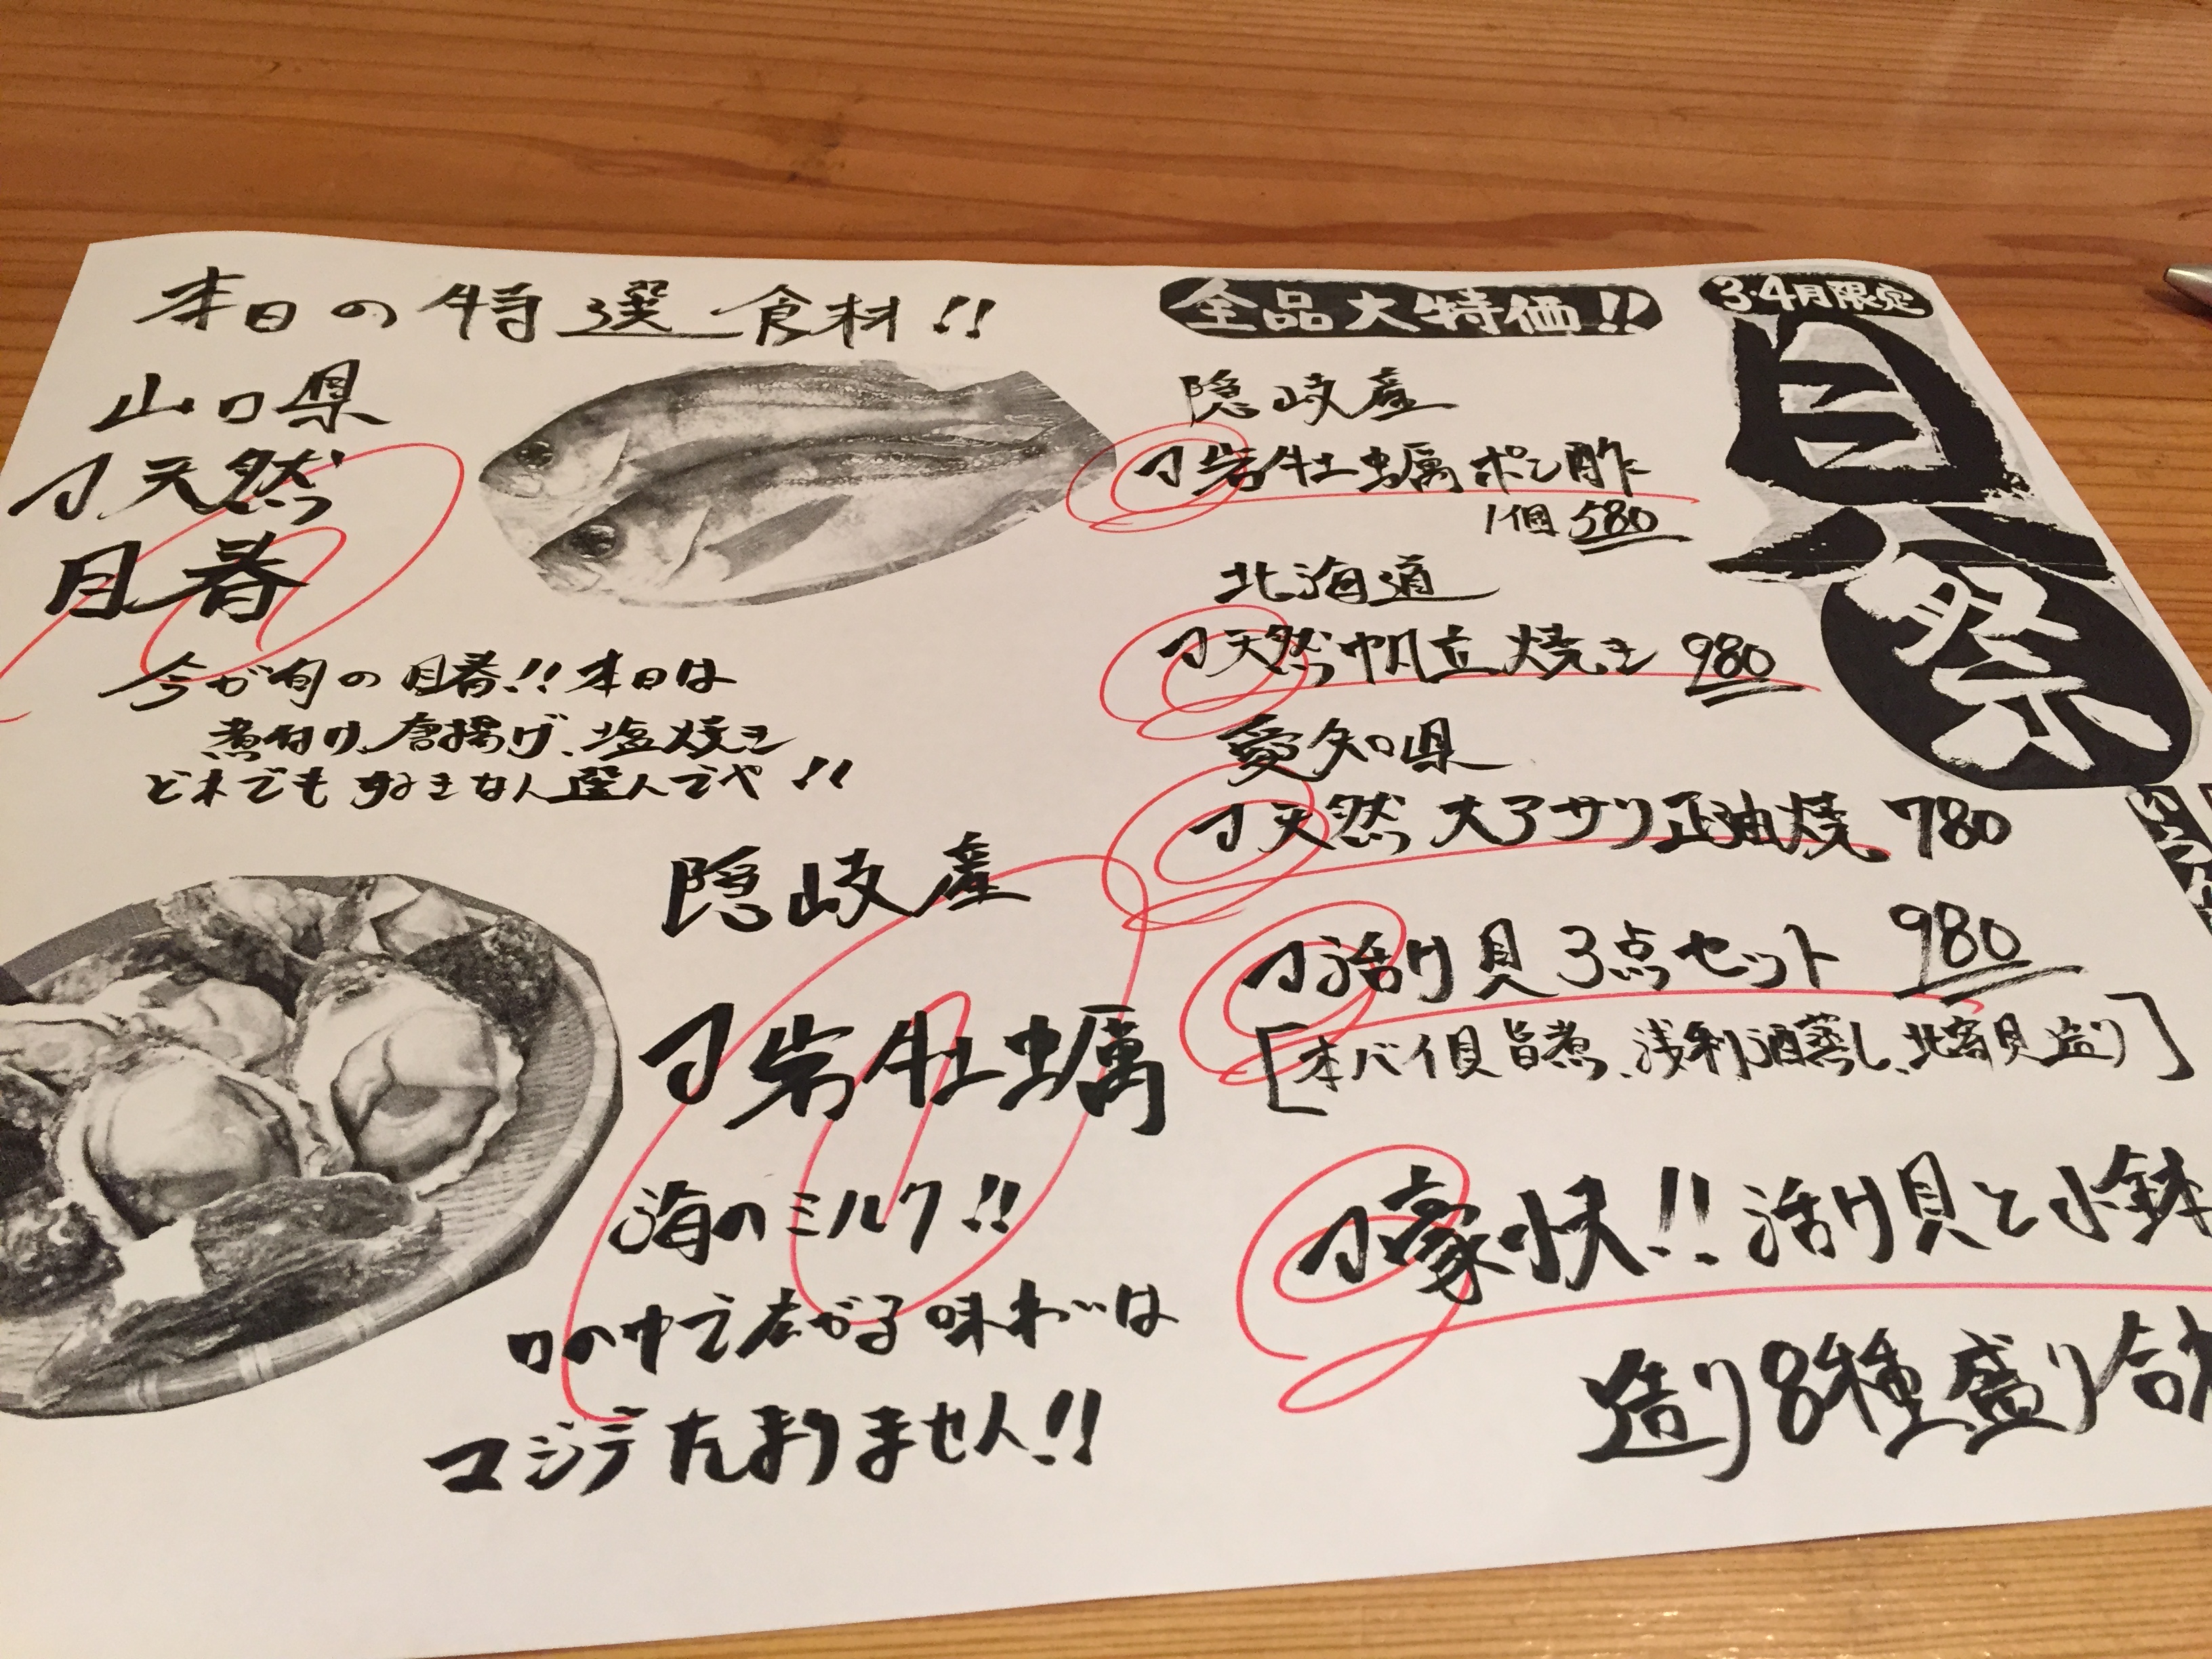 本日の特選食材!!
山口県
天然
目春
今が旬の目春!!本日は
煮付け、唐揚げ、塩焼き
どれでも好きなん選んでや!!
隠岐産
岩牡蠣
海のミルク!!
口の中で広がる味わいは
マジでたまりません!!
3・4月限定
貝祭
全品大特価!!
隠岐産
岩牡蠣ポン酢
1個 580
北海道
天然帆立焼き 980
愛知県
天然 大アサリ正油焼 780
活け貝3点セット 980
[本バイ貝旨煮、浅利酒蒸し、北寄貝造り]
豪快!!活け貝と小鉢
造り8種盛り合